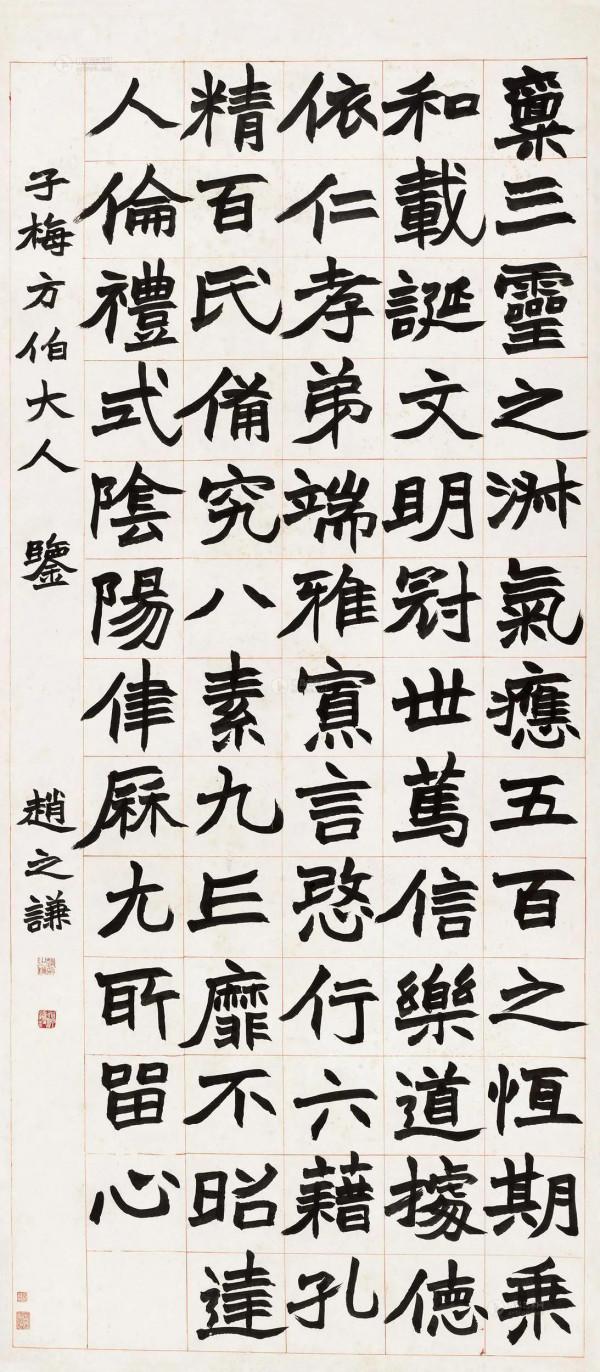 稟三靈之淋氣應五百之恆期乗
和載誕文明冠世篤信樂道據徳
依仁孝弟端雅寡言愍行六藉孔
精百氏備究八素九丘靡不昭達
人倫禮式陰陽律厤尤所留心
子梅方伯大人 鑒
趙之謙